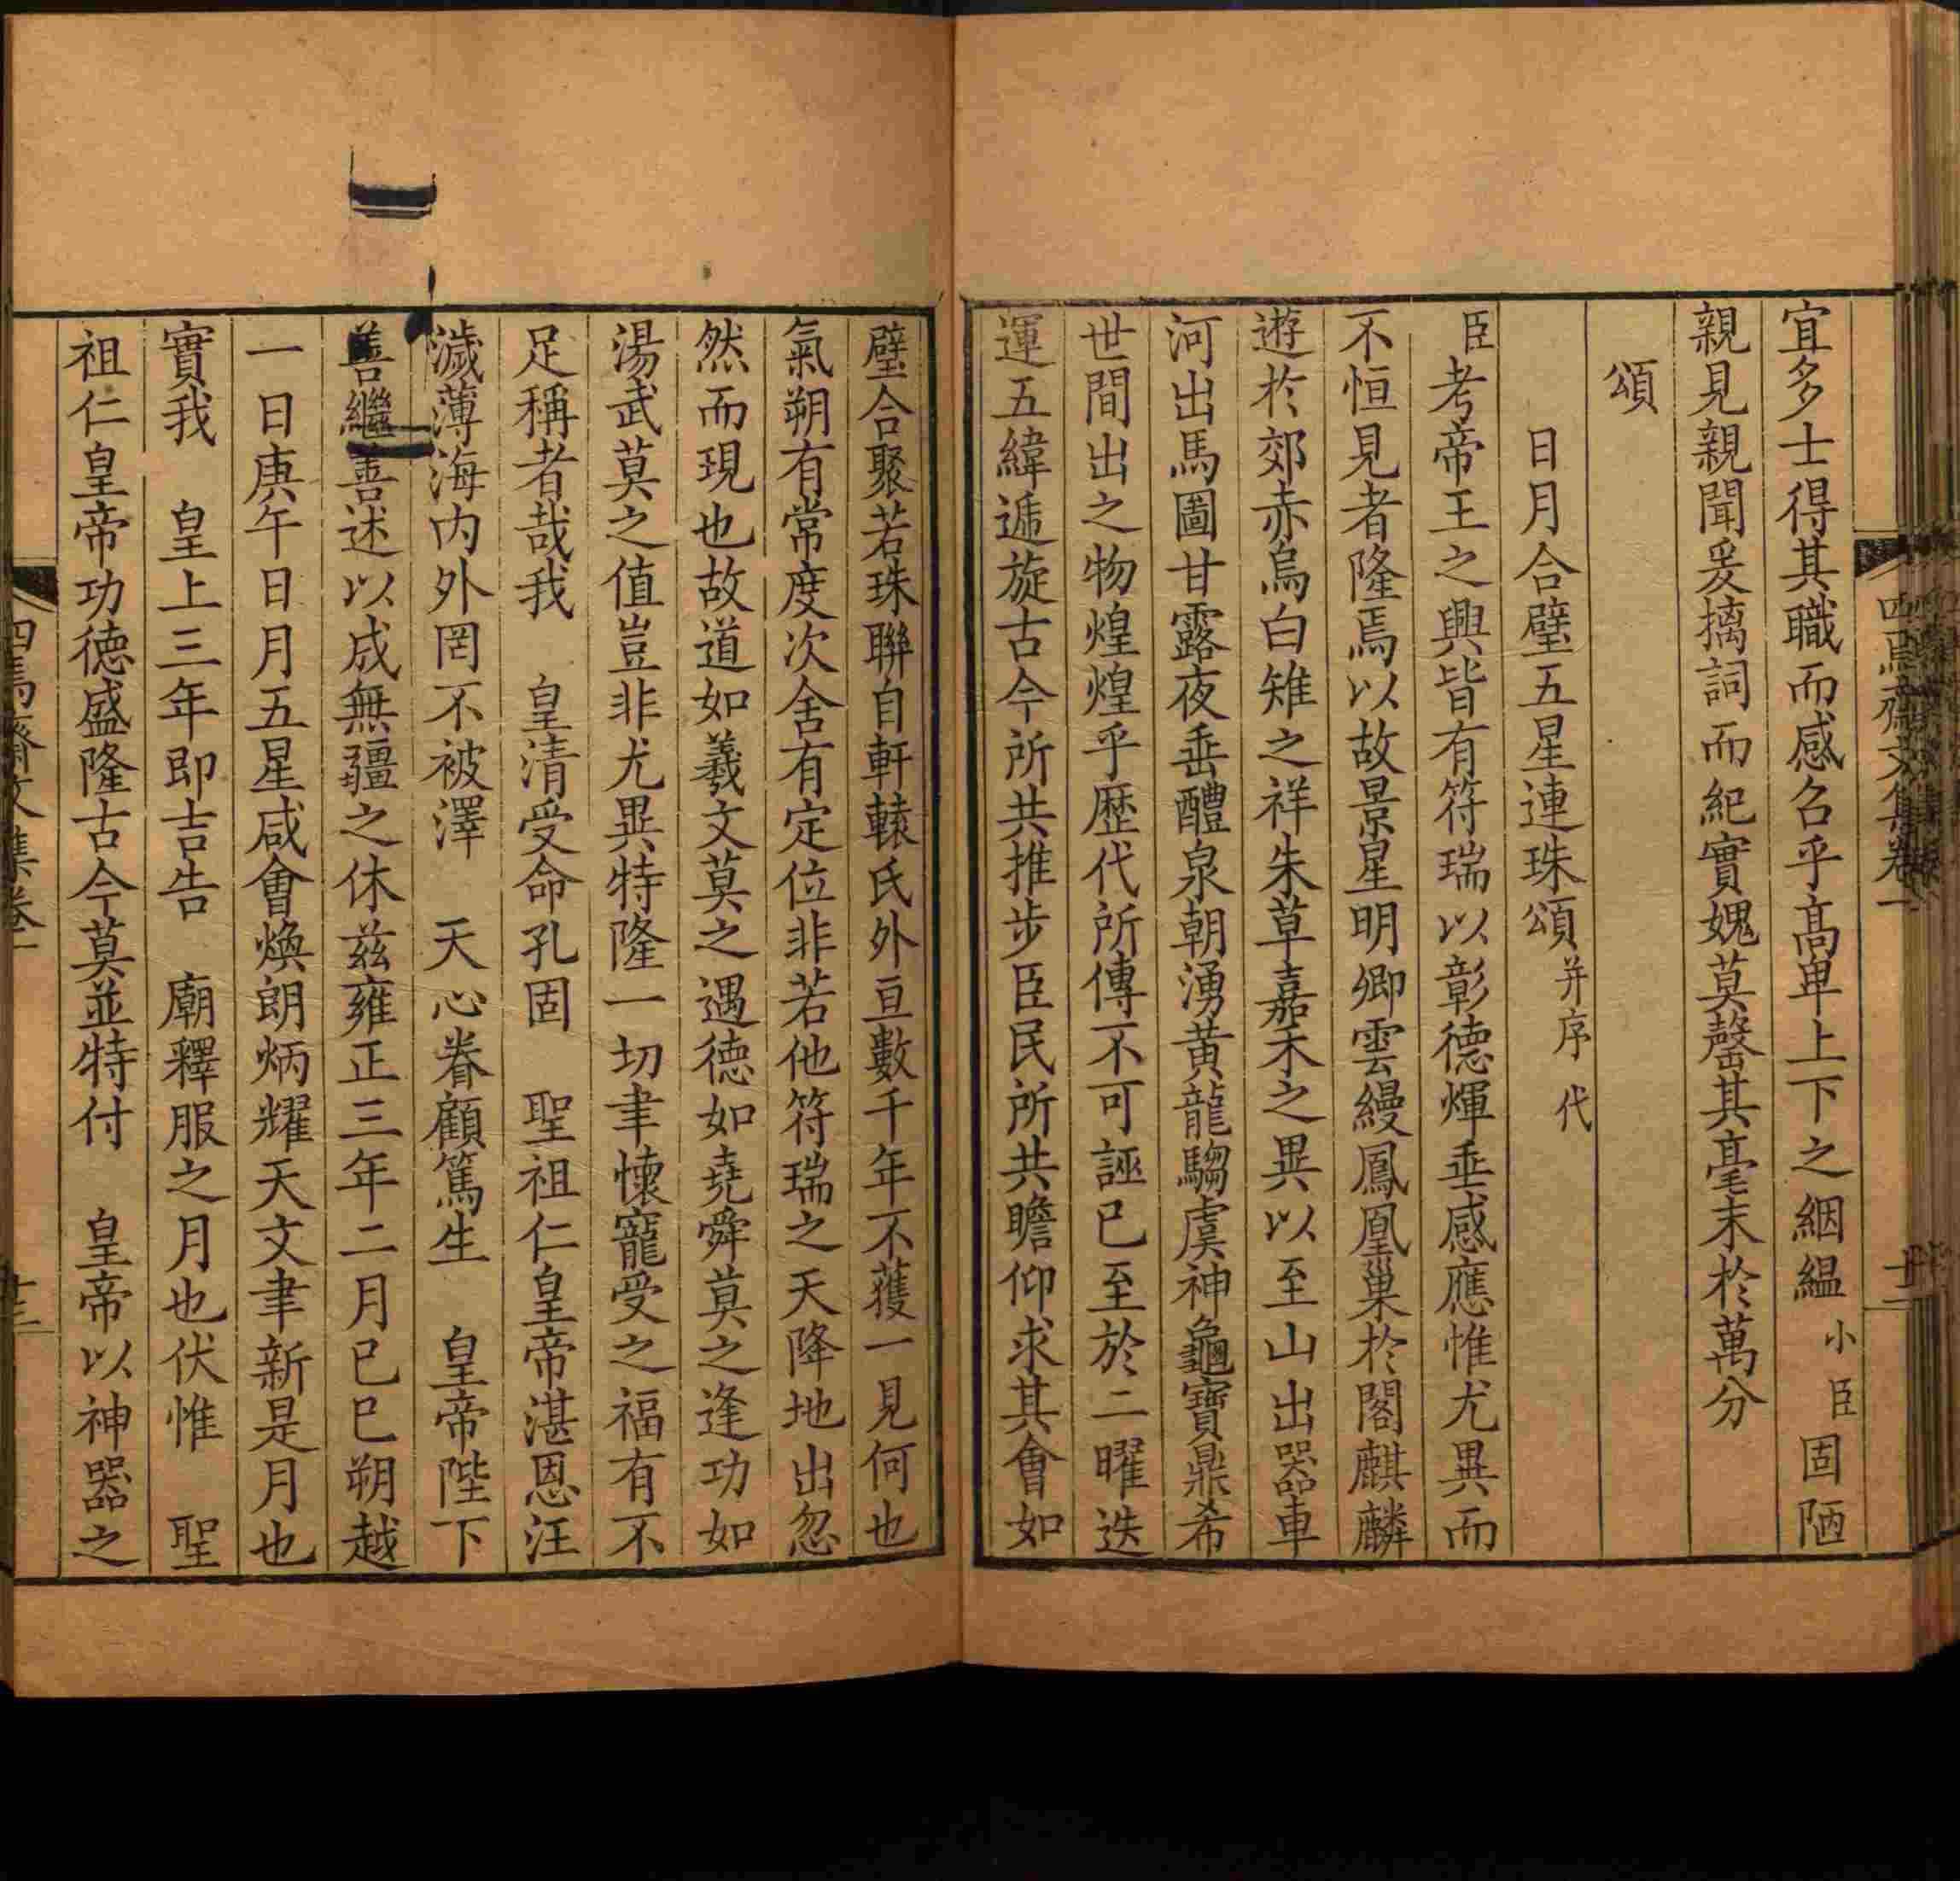 宜多士得其職而感召乎高卑上下之絪縕小臣固陋
親見親聞爰摛詞而紀實媿莫罄其毫末於萬分
頌
日月合璧五星連珠頌并序 代
臣考帝王之興皆有符瑞以彰德煇垂感應惟尤異而
不恒見者隆焉以故景星明卿雲縵鳳凰巢於閣麒麟
遊於郊赤烏白雉之祥朱草嘉禾之異以至山出器車
河出馬圖甘露夜垂醴泉朝湧黃龍騶虞神龜寶鼎希
世間出之物煌煌乎歷代所傳不可誣已至於二曜迭
運五緯遞旋古今所共推步臣民所共瞻仰求其會如
璧合聚若珠聯自軒轅氏外亘數千年不獲一見何也
氣朔有常度次舍有定位非若他符瑞之天降地出忽
然而現也故道如羲文莫之遇德如堯舜莫之逢功如
湯武莫之值豈非尤異特隆一切聿懷寵受之福有不
足稱者哉我 皇清受命孔固 聖祖仁皇帝湛恩汪
濊薄海内外罔不被澤 天心眷顧篤生 皇帝陛下
善繼善述以成無疆之休茲雍正三年二月已巳朔越
一日庚午日月五星咸會煥朗炳耀天文聿新是月也
實我 皇上三年即吉告 廟釋服之月也伏惟 聖
祖仁皇帝功德盛隆古今莫並特付 皇帝以神器之
四焉齋文集卷一
十三